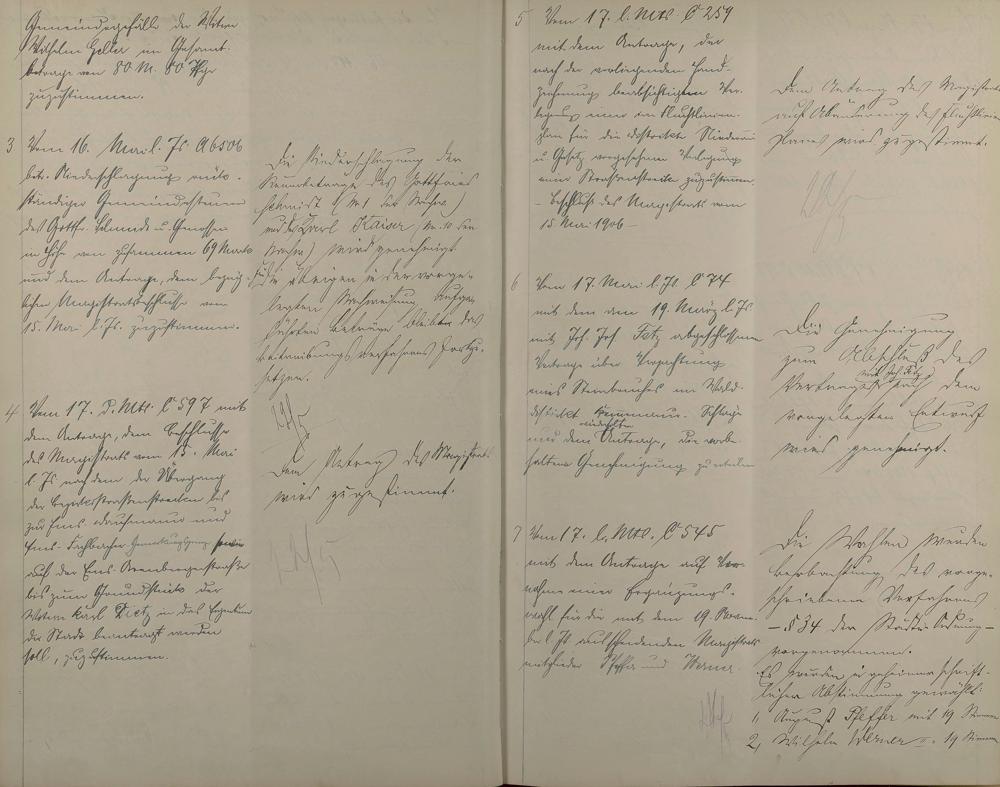 Gemeindegefälle der Witwe
Wilhelm Geller im Gesamt-
betrage von 80 M. 80 Pfge
zuzustimmen.
3 Vom 16. Mai l. Js. A 6506
betr. Niederschlagung rück-
ständiger Gemeindesteuern
des Gottfr. Schmidt u. Genossen
in Höhe von zusammen 69 Mark
und dem Antrage, dem bezüg-
lichen Magistratsbeschlusse vom
15. Mai l. Js. zuzustimmen.
Die Niederschlagung der
Steuerbeträge des Gottfried
Schmidt (No 1 der Nachw.)
und des Karl Kaiser (No. 10 der
Nachw.) wird genehmigt
für die übrigen in der vorge-
legten Nachweisung aufge-
führten Beträge bleibt das
Beitreibungsverfahren fortzu-
setzen.
4 Vom 17. d. Mts. C 597 mit
dem Antrage, dem Beschlusse
des Magistrats vom 15. Mai
l. Js. nach dem der Übergang
der Bezirksstraßenstrecken bis
zur Ems-Dausenauer und
Ems-Fachbacher Gemarkungsgrenze sowie
auf der Ems-Arenbergerstraße
bis zum Grundstück der
Witwe Karl Dietz in das Eigentum
der Stadt beantragt werden
soll, zuzustimmen.
Dem Antrag des Magistrats
wird zugestimmt.
5 Vom 17. l. Mts. C 259
mit dem Antrage, der
nach der vorliegenden Hand-
zeichnung beabsichtigten
plan für die
u. Gesetz vorgesehene Verlegung
einer Straßenstrecke zuzustimmen.
– Beschluß des Magistrats vom
15. Mai 1906 –
Dem Antrag des Magistrats
auf Abänderung des Fluchtlinien
Planes wird zugestimmt.
6 Vom 17. Mai l. Js. C 74
mit dem am 19. März l. Js.
mit Joh. Jos. Fetz abgeschlossenen
Vertrage über Verpachtung
eines Steinbruches im Wald-
distrikt
und dem Antrage, die vorbe-
haltene Genehmigung zu erteilen
Die Genehmigung
zum Abschluß des
Vertrages mit Joh. Fetz nach dem
vorgelegten Entwurf
wird genehmigt.
7 Vom 17. l. Mts. C 545
mit dem Antrage auf Vor-
nahme einer Ergänzungs-
wahl für die mit dem 19. Novem-
ber l. Js. ausscheidenden Magistrats
mitglieder Pfeffer und Werner.
Die Wahlen werden
Beobachtung des vorge-
schriebenen Verfahrens
– § 34 der Städte-Ordnung –
vorgenommen.
Es wurden in geheimer schrift-
licher Abstimmung gewählt:
1, August Pfeffer mit 19 Stimmen
2, Wilhelm Werner II. 19 Stimmen